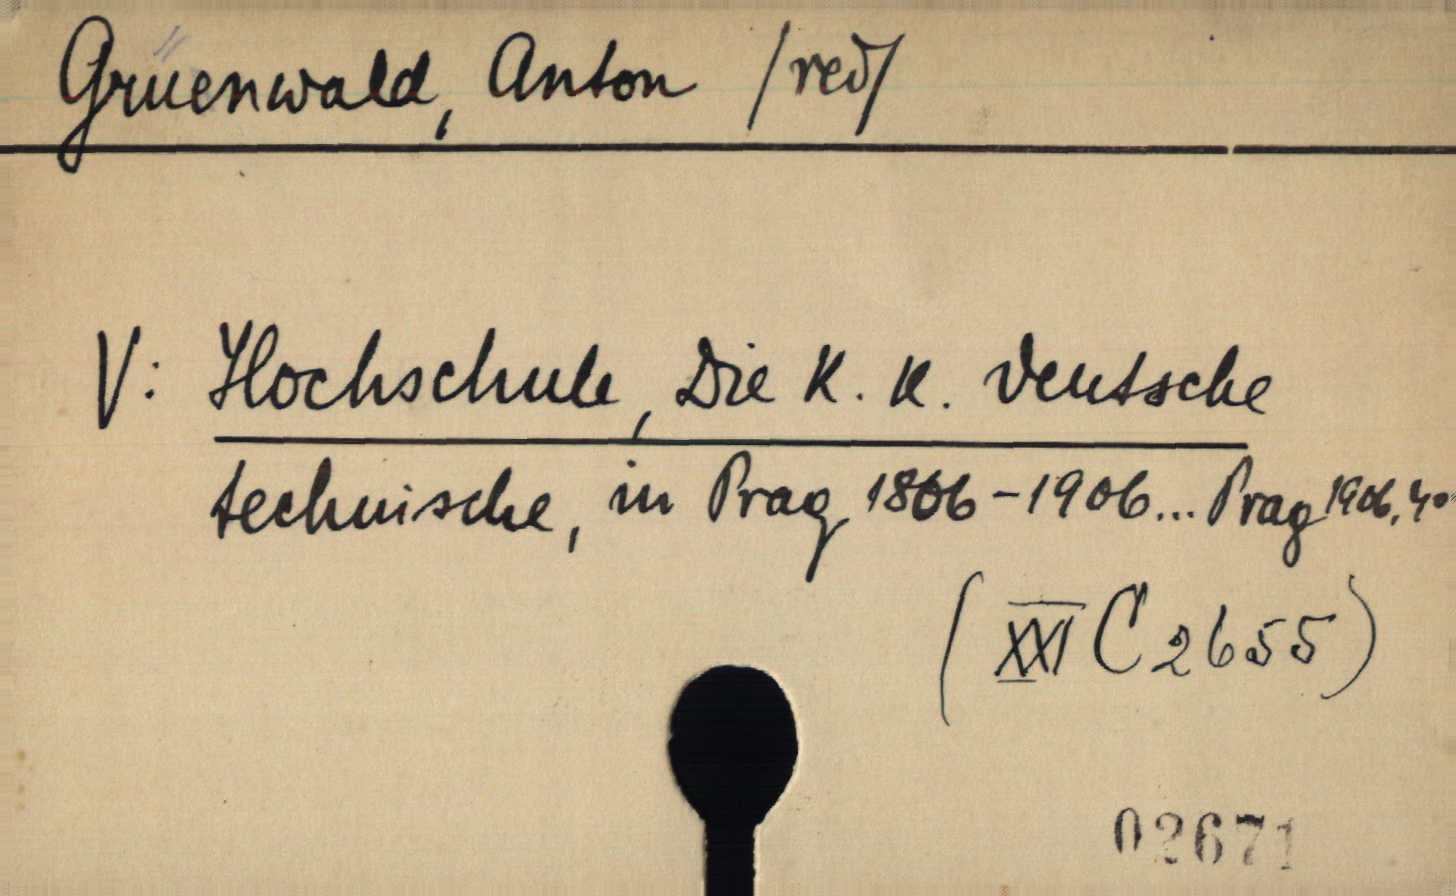 Grüenwald, Anton /red/
V: Hochschule, Die K. K. Deutsche
technische, in Prag 1806-1906... Prag 1906, 4°
(XXI C 2655)
02671